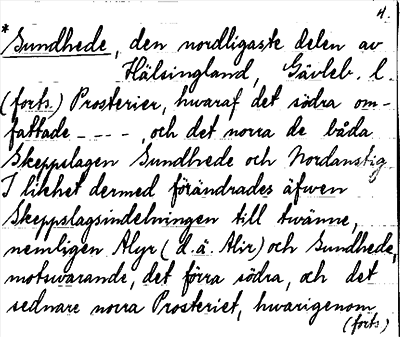 4.
* Sundhede, den nordligaste delen av
Hälsingland, Gävleb. l.
(forts.) Prosterier, hwaraf det södra om-
fattade - - - -, och det norra de båda
Skeppslagen Sundhede och Nordanstig
I likhet dermed förändrades äfwen
Skeppslagsindelningen till twänne,
nemligen Alyr (d.ä. Alir) och Sundhede,
motswarande, det förra södra, och det
sednare norra Prosteriet, hwarigenom
(forts)